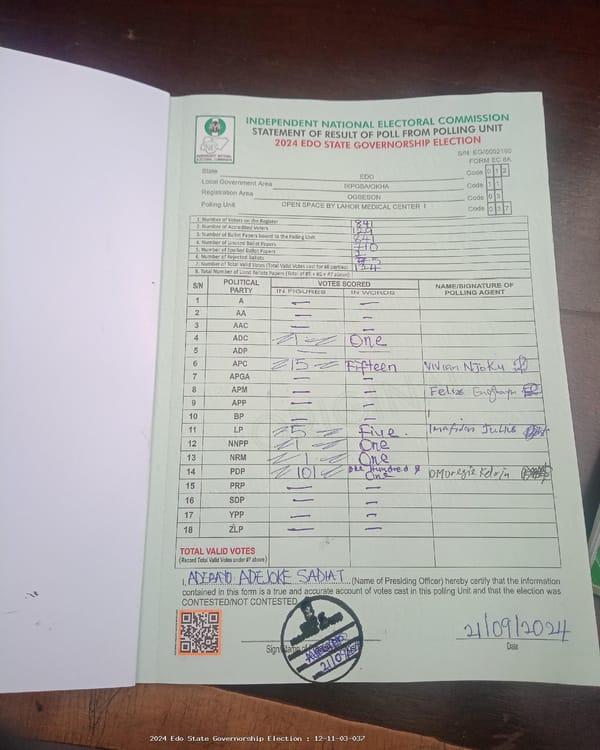 INDEPENDENT NATIONAL ELECTORAL COMMISSION
STATEMENT OF RESULT OF POLL FROM POLLING UNIT
2024 EDO STATE GOVERNORSHIP ELECTION
FORM EC 8A
State EDO Code 12
Local Government Area IKPOBA/OKHA Code 11
Registration Area OGBESON Code 03
Polling Unit OPEN SPACE BY LAHOR MEDICAL CENTER I Code 037
1. Number of Voters on the Register 841
2. Number of Accredited Voters
3. Number of Ballot Papers Issued to the Polling Unit 841
4. Number of Unused Ballot Papers 710
5. Number of Spoiled Ballot Papers
6. Number of Rejected Ballots
7. Number of Total Valid Votes (Total Valid Votes cast for all parties)
8. Total Number of Used Ballots Papers (Total of #5 + #6 + #7 above)
S/N POLITICAL PARTY VOTES SCORED NAME/SIGNATURE OF POLLING AGENT
IN FIGURES IN WORDS
1 A — —
2 AA — —
3 AAC — —
4 ADC 1 One
5 ADP — —
6 APC 15 Fifteen Vivian Njoku
7 APGA — —
8 APM — — Felix
9 APP — —
10 BP — —
11 LP 5 Five. Imafidon Julius
12 NNPP 1 One
13 NRM 1 One
14 PDP 101 One Hundred & One Omoregie
15 PRP — —
16 SDP — —
17 YPP — —
18 ZLP — —
TOTAL VALID VOTES
(Record Total Valid Votes under #7 above)
I, ADEBAYO ADEJOKE SADIAT (Name of Presiding Officer) hereby certify that the information
contained in this form is a true and accurate account of votes cast in this polling Unit and that the election was
CONTESTED/NOT CONTESTED.
21/09/2024
Date
2024 Edo State Governorship Election : 12-11-03-037